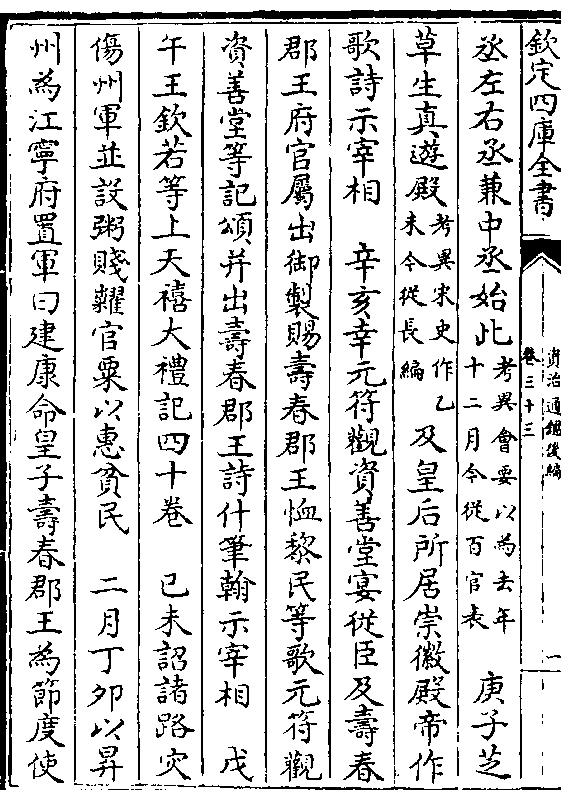 欽定四庫全書
資治通鑑後編
卷三十三
一
丞左右丞兼中丞始此考異會要以為去年十二月今從百官表 庚子芝
草生真遊殿考異宋史作乙未今從長編及皇后所居崇徽殿帝作
歌詩示宰相 辛亥幸元符觀資善堂宴從臣及壽春
郡王府官屬出御製賜壽春郡王恤黎民等歌元符觀
資善堂等記頌并出壽春郡王詩什筆翰示宰相 戊
午王欽若等上天禧大禮記四十卷 已未詔諸路災
傷州軍並設粥賤糶官粟以惠貧民 二月丁卯以昇
州為江寧府置軍曰建康命皇子壽春郡王為節度使